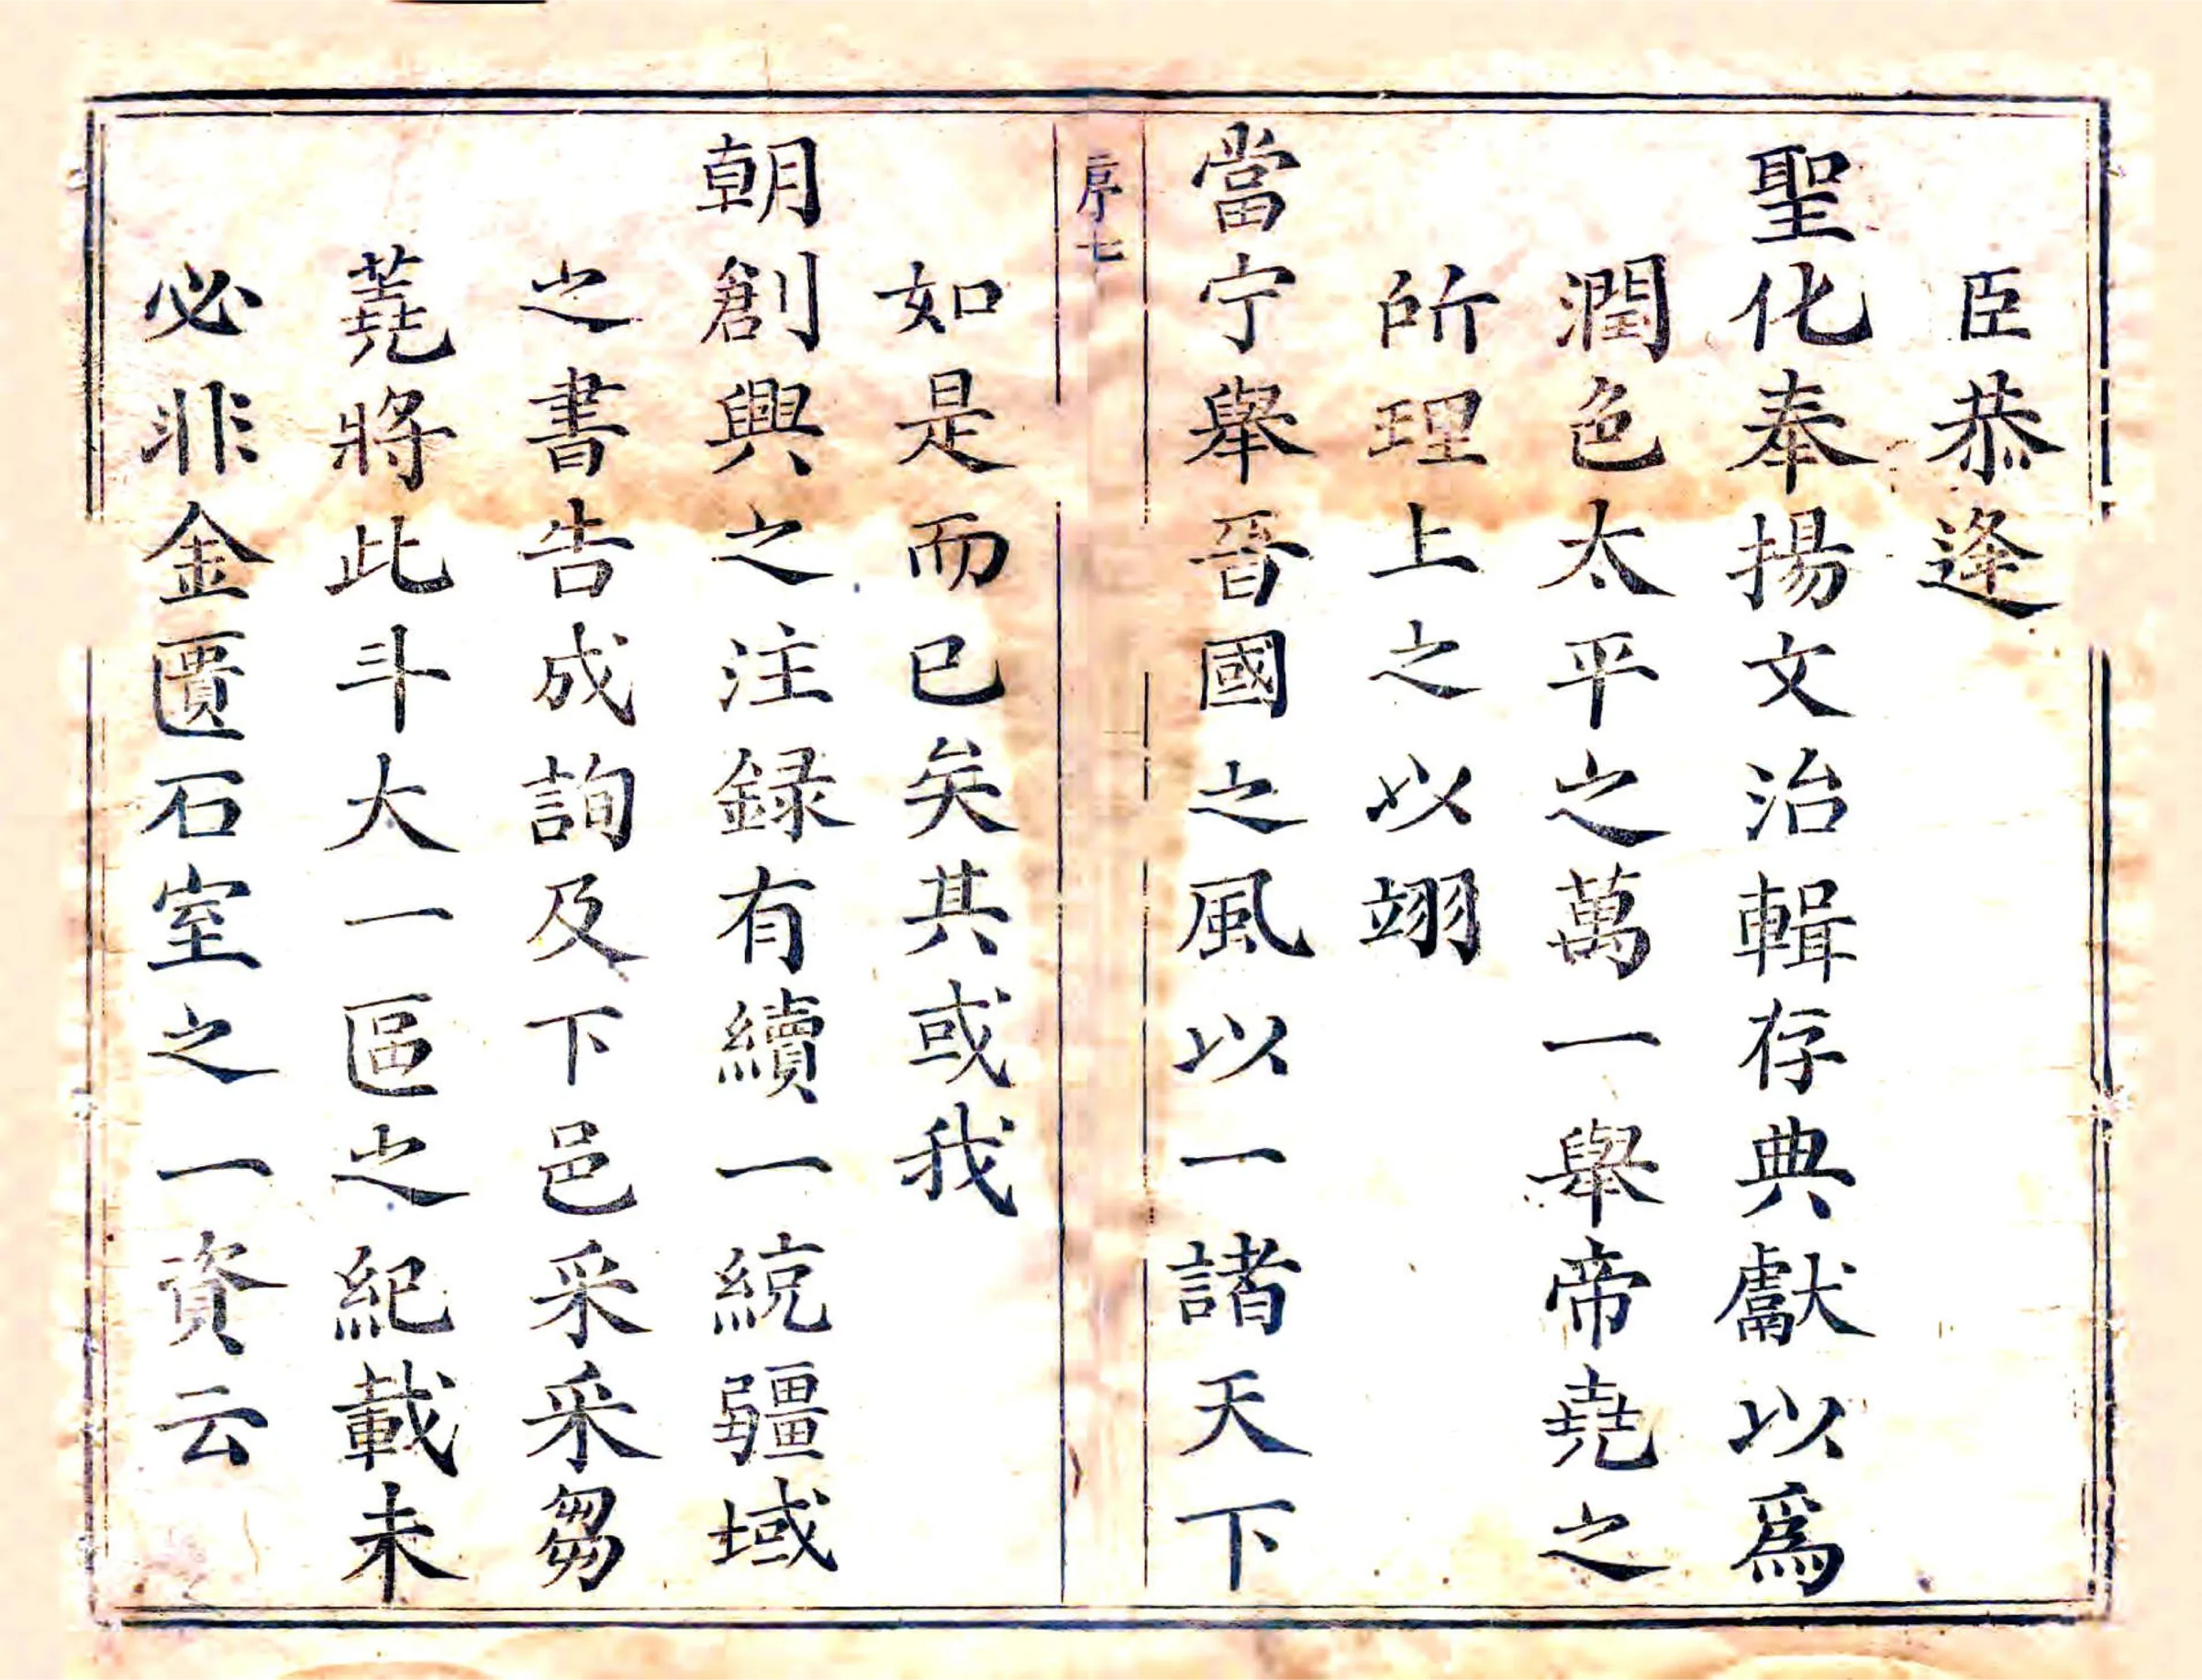 臣恭逢
聖化奉揚文治輯存典獻以爲
潤色太平之萬一舉帝堯之
所理上之以翊
當宁舉晉國之風以一諸天下
序七
如是而已矣其或我
朝創興之注録有續一統疆域
之書告成詢及下邑采采芻
蕘將此斗大一區之紀載未
必非金匱石室之一資云